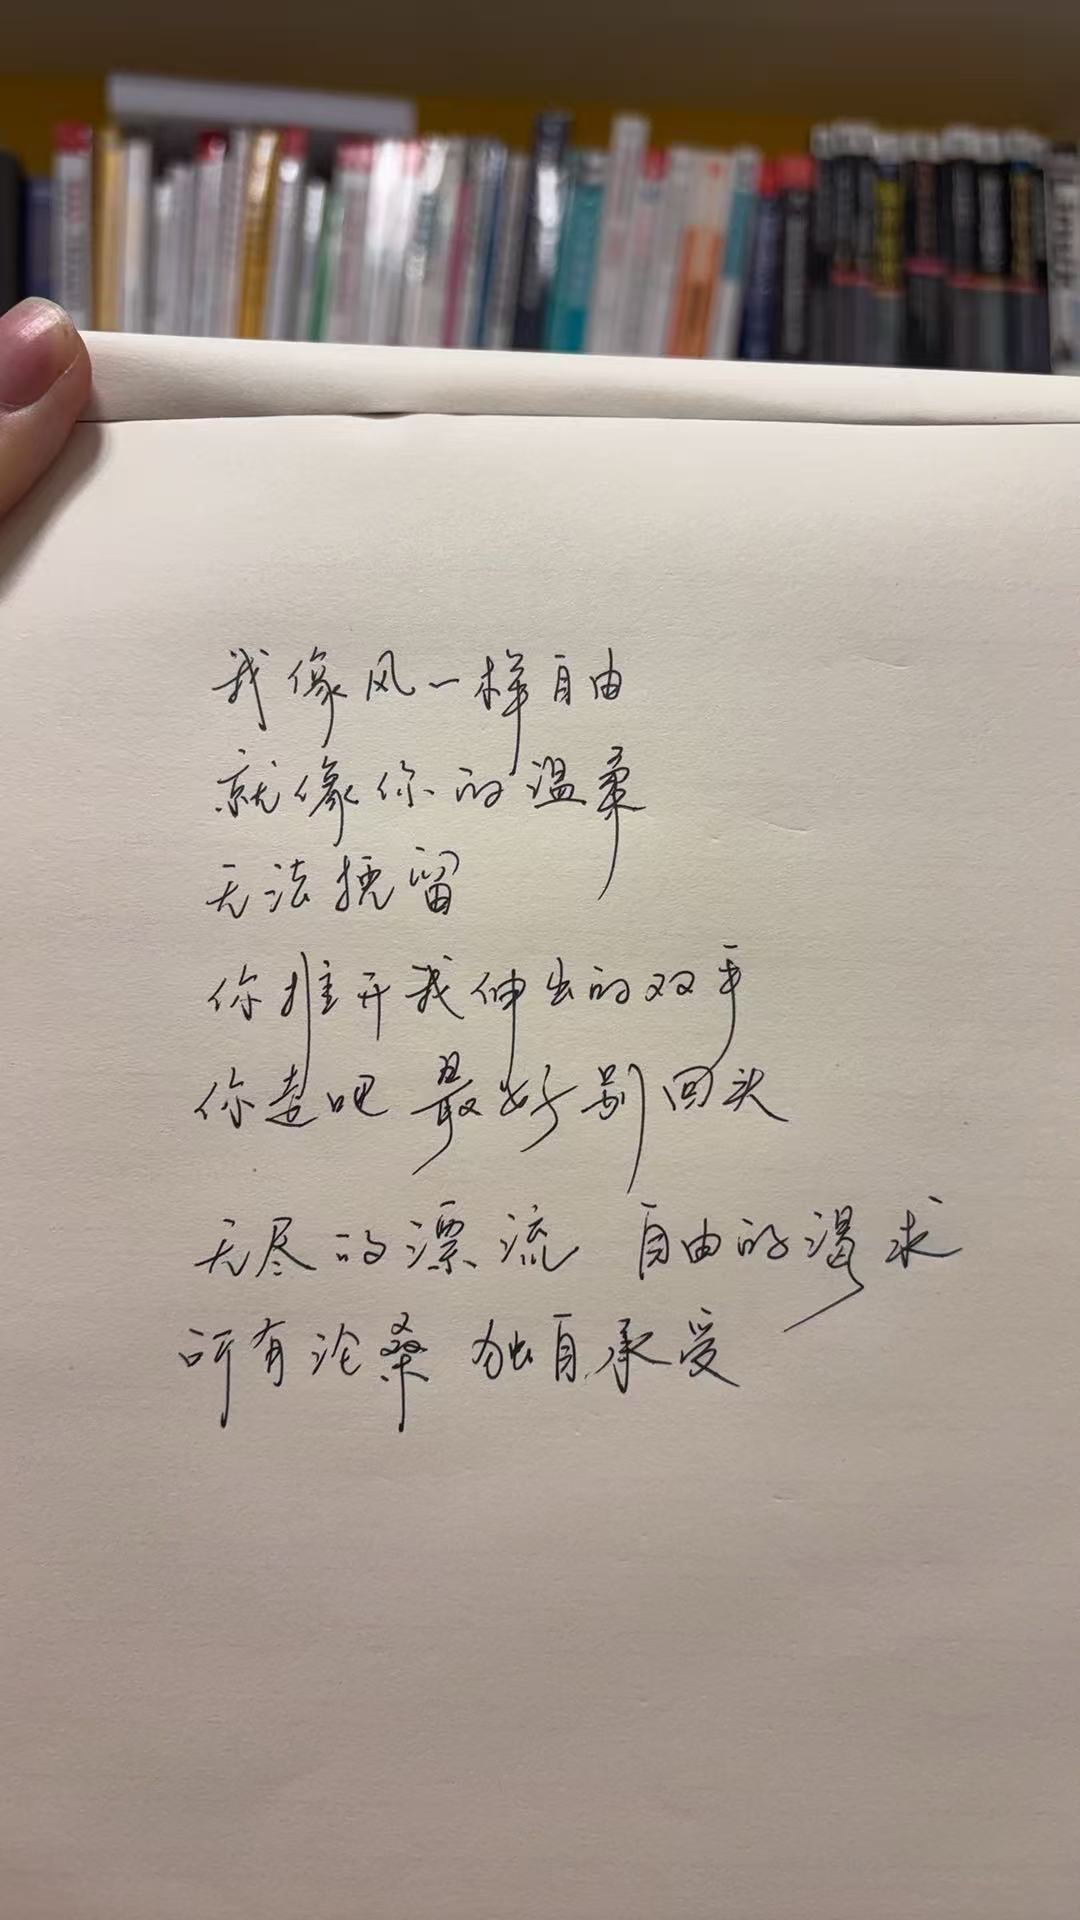 我像风一样自由
就像你的温柔
无法挽留
你推开我伸出的双手
你走吧 最好别回头
无尽的漂流 自由的渴求
所有沧桑 独自承受